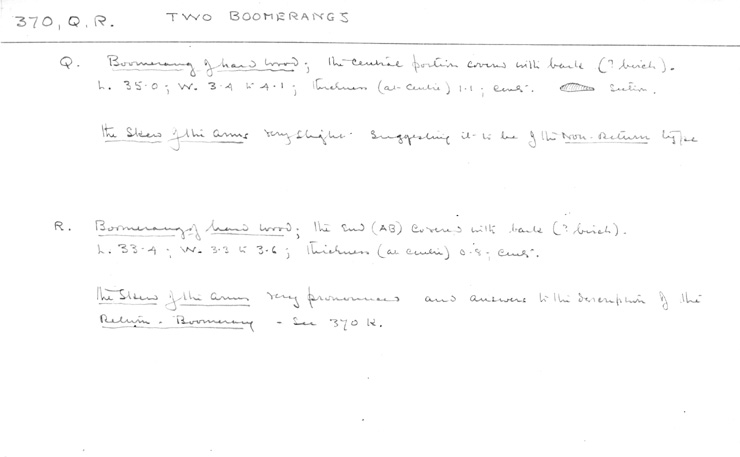 370, Q. R. TWO BOOMERANGS
Q. Boomerang of hard wood; the central portion covered with bark (? birch).
L. 35.0; W. 3.4 to 4.1; thickness (at centre) 1.1; cents. section.
The Skew of the arms very slight - suggesting it to be of the Non-Return type
R. Boomerang of hard wood; the end (AB) covered with bark (? birch).
L. 33.4; W. 3.3 to 3.6; thickness (at centre) 0.8; cents.
The Skew of the arms very pronounced and answers to the description of the
Return-Boomerang - See 370 K.